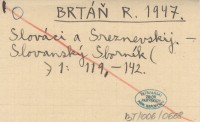 BRTÁŇ R. 1947.
Slováci a Sreznevskij. –
Slovanský Sborník (
1: 119, – 142.